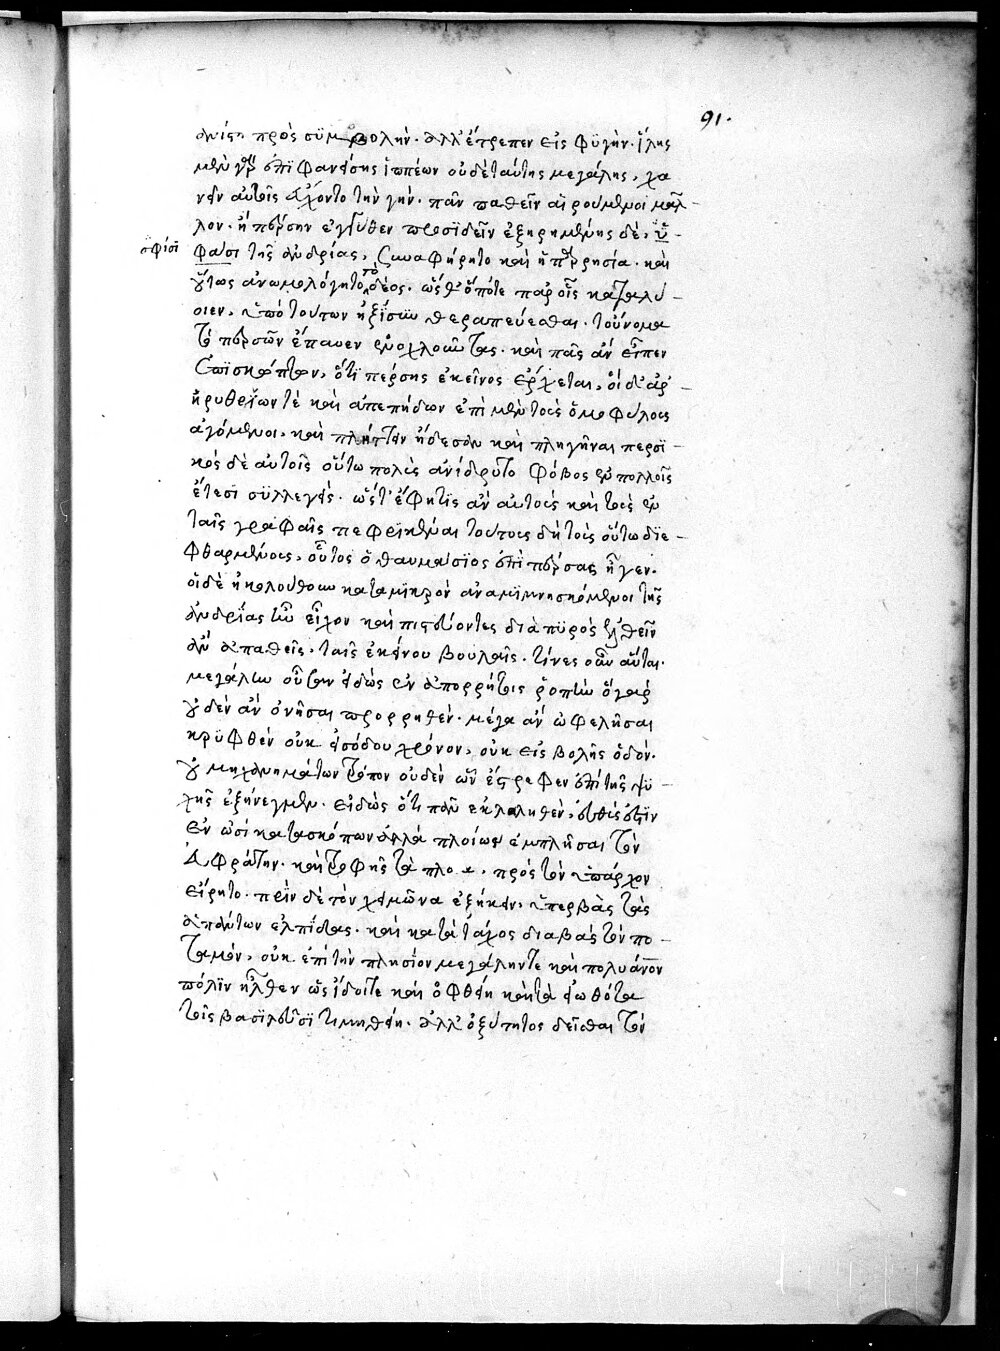 91.
ἀνίστη πρὸς συμβολὴν. ἀλλ' ἔτρεπεν εἰς φυγὴν. ἴλης
μὲν γὰρ ἐπιφανείσης ἱππέων οὐδὲ ταύτης μεγάλης, χα
νεῖν αὐτοῖς εὔχοντο τὴν γῆν. πᾶν παθεῖν αἱρούμενοι μᾶλ
λον. ἢ πέρσην ἐγγύθεν προσιδεῖν ἐξῃρημένης δὲ, ὑ -
σφίσι
φασι τῆς ἀνδρίας, συναφῄρητο καὶ ἡ παρρησία. καὶ
οὕτως ἀνωμολόγητο τὸ δέος. ὥσθ' ὁπότε παρ' οἷς καταλύ -
οιεν, ὑπὸ τούτων ἠξίουν θεραπεύεσθαι. τοὔνομα
τὸ περσῶν ἔπαυεν ἐνοχλοῦντας. καὶ πᾶς ἂν εἶπεν
ἐπισκώπτων, ὅτι πέρσης ἐκεῖνος ἔρχεται, οἱ δ' ἄρ' -
ἠρυθρίων τὲ καὶ ἀπεπήδων ἐπὶ μὲν τοὺς ὁμοφύλους
ἀγόμενοι, καὶ πλήττειν ᾔδεσαν καὶ πληγῆναι περσι -
κὸς δὲ αὐτοῖς οὕτω πολὺς ἀνίδρυτο φόβος ἐν πολλοῖς
ἔτεσι συλλεγεὶς. ὥστ' ἔφη τὶς ἂν αὐτοὺς καὶ τοὺς ἐν
ταῖς γραφαῖς πεφρικέναι τούτους δὴ τοὺς οὕτω διε -
φθαρμένους, οὗτος ὁ θαυμάσιος ἐπὶ πέρσας ἦγεν.
οἱ δὲ ἠκολούθουν κατα μικρὸν ἀναμιμνησκόμενοι τῆς
ἀνδρίας ἣν εἶχον καὶ πιστεύοντες διὰ πυρὸς ἐλθεῖν
ἂν ἀπαθεῖς. ταῖς ἐκείνου βουλαῖς. τίνες οὖν αὗται.
μεγάλην οὖσαν εἰδὼς ἐν ἀπορρήτοις ῥοπὴν ὃ γὰρ
οὐδὲν ἂν ὀνῆσαι προρρηθὲν. μέγα ἂν ὠφελῆσαι
κρυφθὲν οὐκ εἰσόδου χρόνον, οὐκ εἰσβολῆς ὁδόν.
οὐ μηχανημάτων τρόπον οὐδὲν ὧν ἔστρεφεν ἐπὶ τῆς ψυ -
χῆς ἐξήνεγκεν. εἰδὼς ὅτι πᾶν ἐκλαληθὲν, εὐθύς ἐστιν
ἐν ὠσὶ κατασκόπων ἀλλὰ πλοίων ἐμπλῆσαι τὸν
εὐφράτην. καὶ τροφῆς τὰ πλοῖα, πρὸς τὸν ὕπαρχον
εἴρητο. πρὶν δὲ τὸν χειμῶνα ἐξήκειν, ὑπερβὰς τὰς
ἁπάντων ἐλπίδας. καὶ κατὰ τάχος διαβὰς τὸν πο -
ταμόν, οὐκ ἐπὶ τὴν πλησίον μεγάλην τε καὶ πολυάνον
πόλιν ἦλθεν ὡς ἴδοι τε καὶ ὀφθείη καὶ τὰ εἰωθότα
τοῖς βασιλεῦσι τιμηθείη. ἀλλ' ὀξύτητος δεῖσθαι τὸν